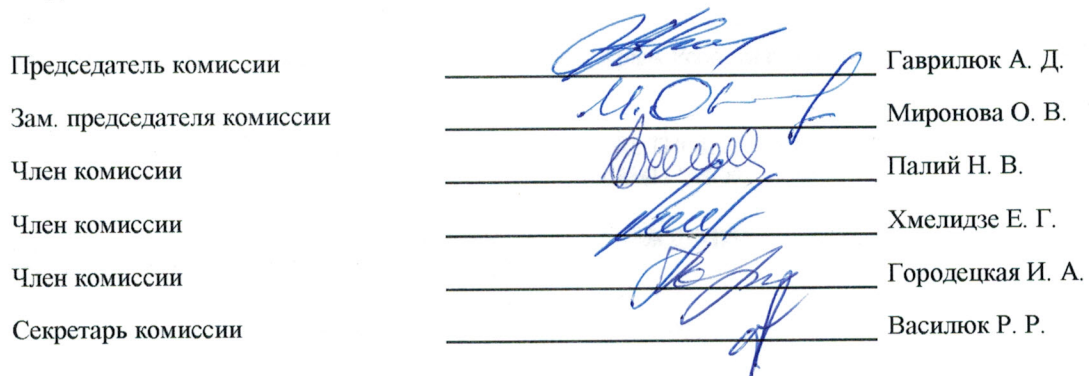 Председатель комиссии Гаврилюк А. Д.
Зам. председателя комиссии Миронова О. В.
Член комиссии Палий Н. В.
Член комиссии Хмелидзе Е. Г.
Член комиссии Городецкая И. А.
Секретарь комиссии Василюк Р. Р.